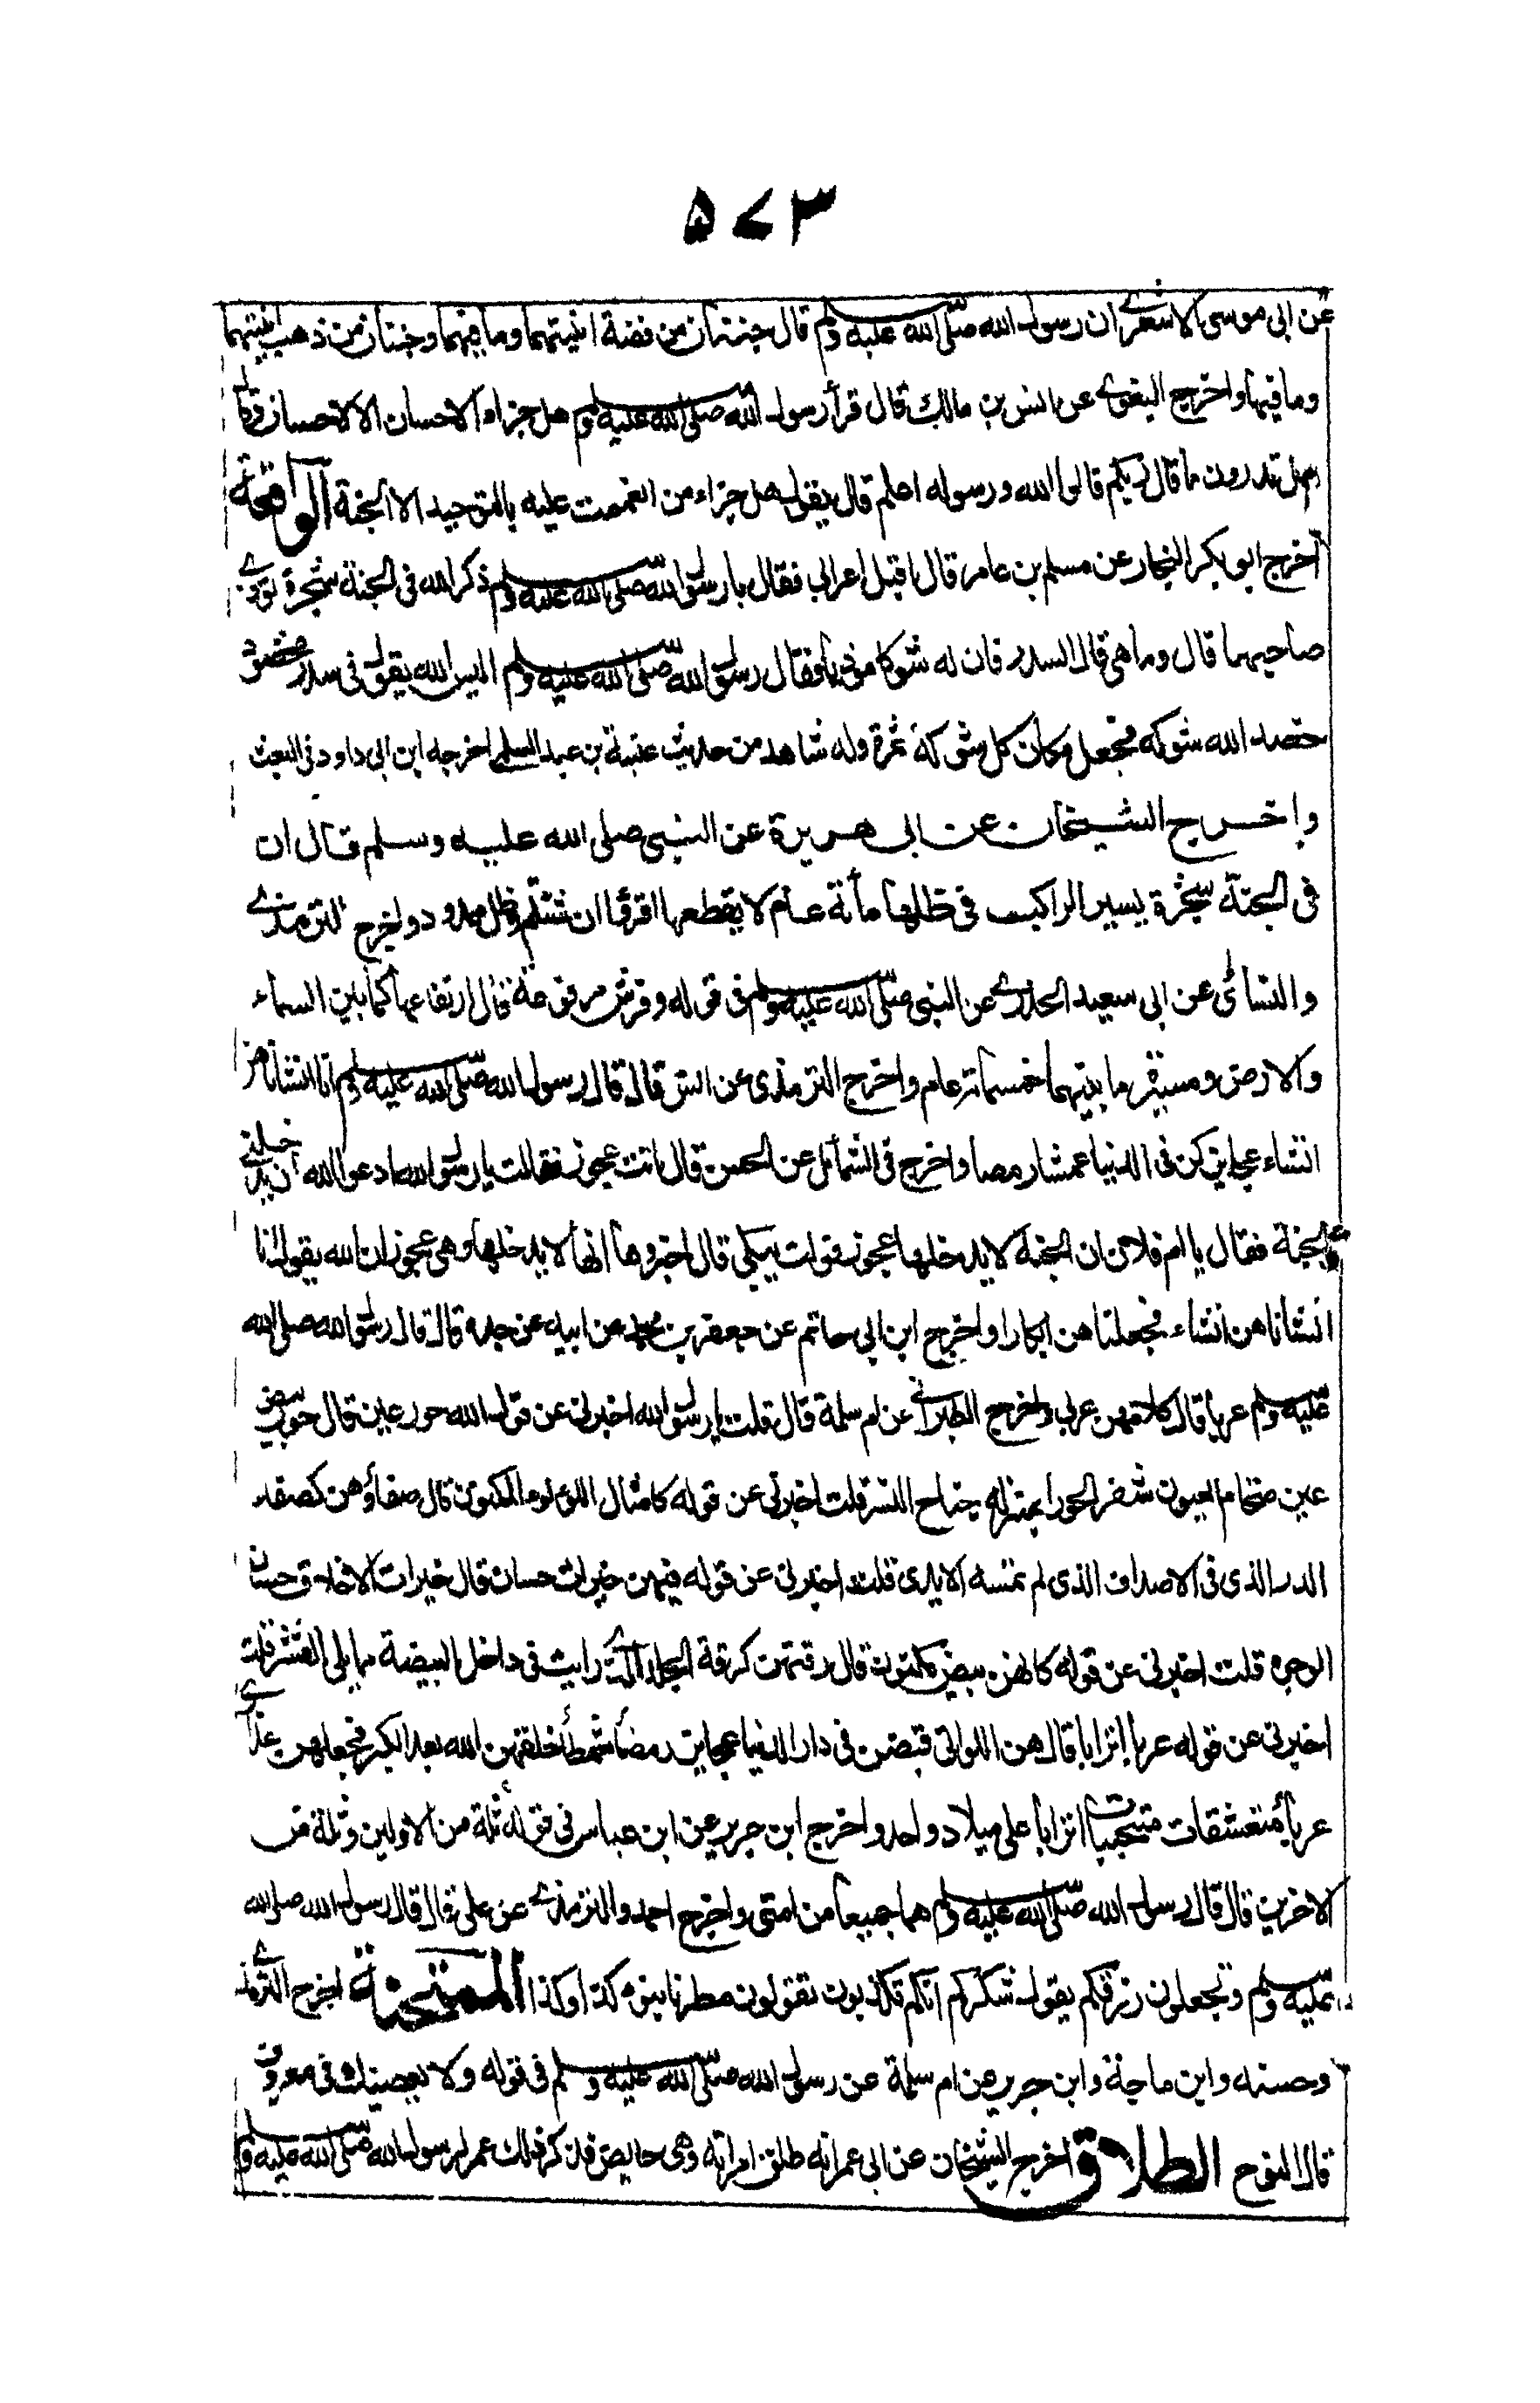 ۵۷۳
عن ابی موسی الاشعری ان رسول الله صلی الله علیه وسلم قال جنتان من فضة انیتهما وما فیهما وجنتان من ذهب انیتهما
وما فیهما واخرج البغوی عن انس بن مالك قال قرأ رسول الله صلی الله علیه وسلم هل جزاء الاحسان الا الاحسان وقال
هل تدرون ما قال ربکم قالوا الله ورسوله اعلم قال یقول هل جزاء من انعمت علیه بالتوحید الا الجنة الواقعة
اخرج ابو بکر النجار عن مسلم بن عامر قال اقبل اعرابی فقال یا رسول الله صلی الله علیه وسلم ذکر الله فی الجنة شجرة توذی
صاحبها قال وما هی قال السدر فان له شوکا موذیا فقال رسول الله صلی الله علیه وسلم الیس الله یقول فی سدر مخضود
خضد الله شوکه فجعل مکان کل شوکة ثمرة وله شاهد من حدیث عتبة بن عبد السلمی اخرجه ابن ابی داود فی البعث
واخرج الشیخان عن ابی هریرة عن النبی صلی الله علیه وسلم قال ان
فی الجنة شجرة یسیر الراکب فی ظلها مأئة عام لا یقطعها اقرؤا ان شئتم وظل ممدود واخرج الترمذی
والنسائی عن ابی سعید الخدری عن النبی صلی الله علیه وسلم فی قوله وفرش مرفوعة قال ارتفاعها کما بین السماء
والارض ومسیرة ما بینهما خمسمائة عام واخرج الترمذی عن انس قال قال رسول الله صلی الله علیه وسلم انا انشأناهن
انشاء عجایز کن فی الدنیا عمشا رمصا واخرج فی الشمائل عن الحسن قال اتت عجوز فقالت یا رسول الله ادعوا الله ان یدخلنی
الجنة فقال یا ام فلان ان الجنة لا یدخلها عجوز فولت تبکی قال اخبروها انها لا یدخلها وهی عجوز ان الله یقول انا
انشأناهن انشاء فجعلناهن ابکارا واخرج ابن ابی حاتم عن جعفر بن محمد عن ابیه عن جده قال قال رسول الله صلی الله
علیه وسلم عربا قال کلامهن عربی واخرج الطبرانی عن ام سلمة قال قلت یا رسول الله اخبرنی عن قول الله حور عین قال حور بیض
عین ضخام العیون شفر الحورا بمنزلة جناح النسر قلت اخبرنی عن قوله کامثال اللؤلؤء المکنون قال صفاؤهن کصفد
الدر الذی فی الاصداف الذی لم تمسه الایدی قلت اخبرنی عن قوله فیهن خیرات حسان قال خیرات الاخلاق حسان
الوجوه قلت اخبرنی عن قوله کانهن بیض مکنون قال رقتهن کرقة الجلد الذی رایت فی داخل البیضة مما یلی القشر قلت
اخبرنی عن قوله عربا اترابا قال هن اللواتی قبضن فی دار الدنیا عجایز رمضأ شمطأ خلقهن الله بعد الکبر فجعلهن عذاری
عربا متعشقات متحببات اترابا علی میلاد واحد واخرج ابن جریر عن ابن عباس فی قوله ثلة من الاولین وثلة من
الاخرین قال قال رسول الله صلی الله علیه وسلم هما جمیعا من امتی واخرج احمد والترمذی عن علی قال قال رسول الله صلی الله
علیه وسلم وتجعلون رزقکم یقول شکرکم انکم تکذبون تقولون مطرنا بنوء کذا وکذا الممتحنة اخرج الترمذی
وحسنه وابن ماجة وابن جریر عن ام سلمة عن رسول الله صلی الله علیه وسلم فی قوله ولا یعصینك فی معروف
قال النوح الطلاق اخرج الشیخان عن ابی عمر انه طلق امراته وهی حایض فذکر ذلك عمر لرسول الله صلی الله علیه و